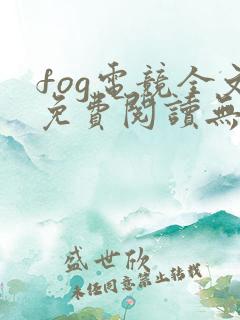 fog電競全文
免費閱讀無
盛世欣
未經同意禁止轉載